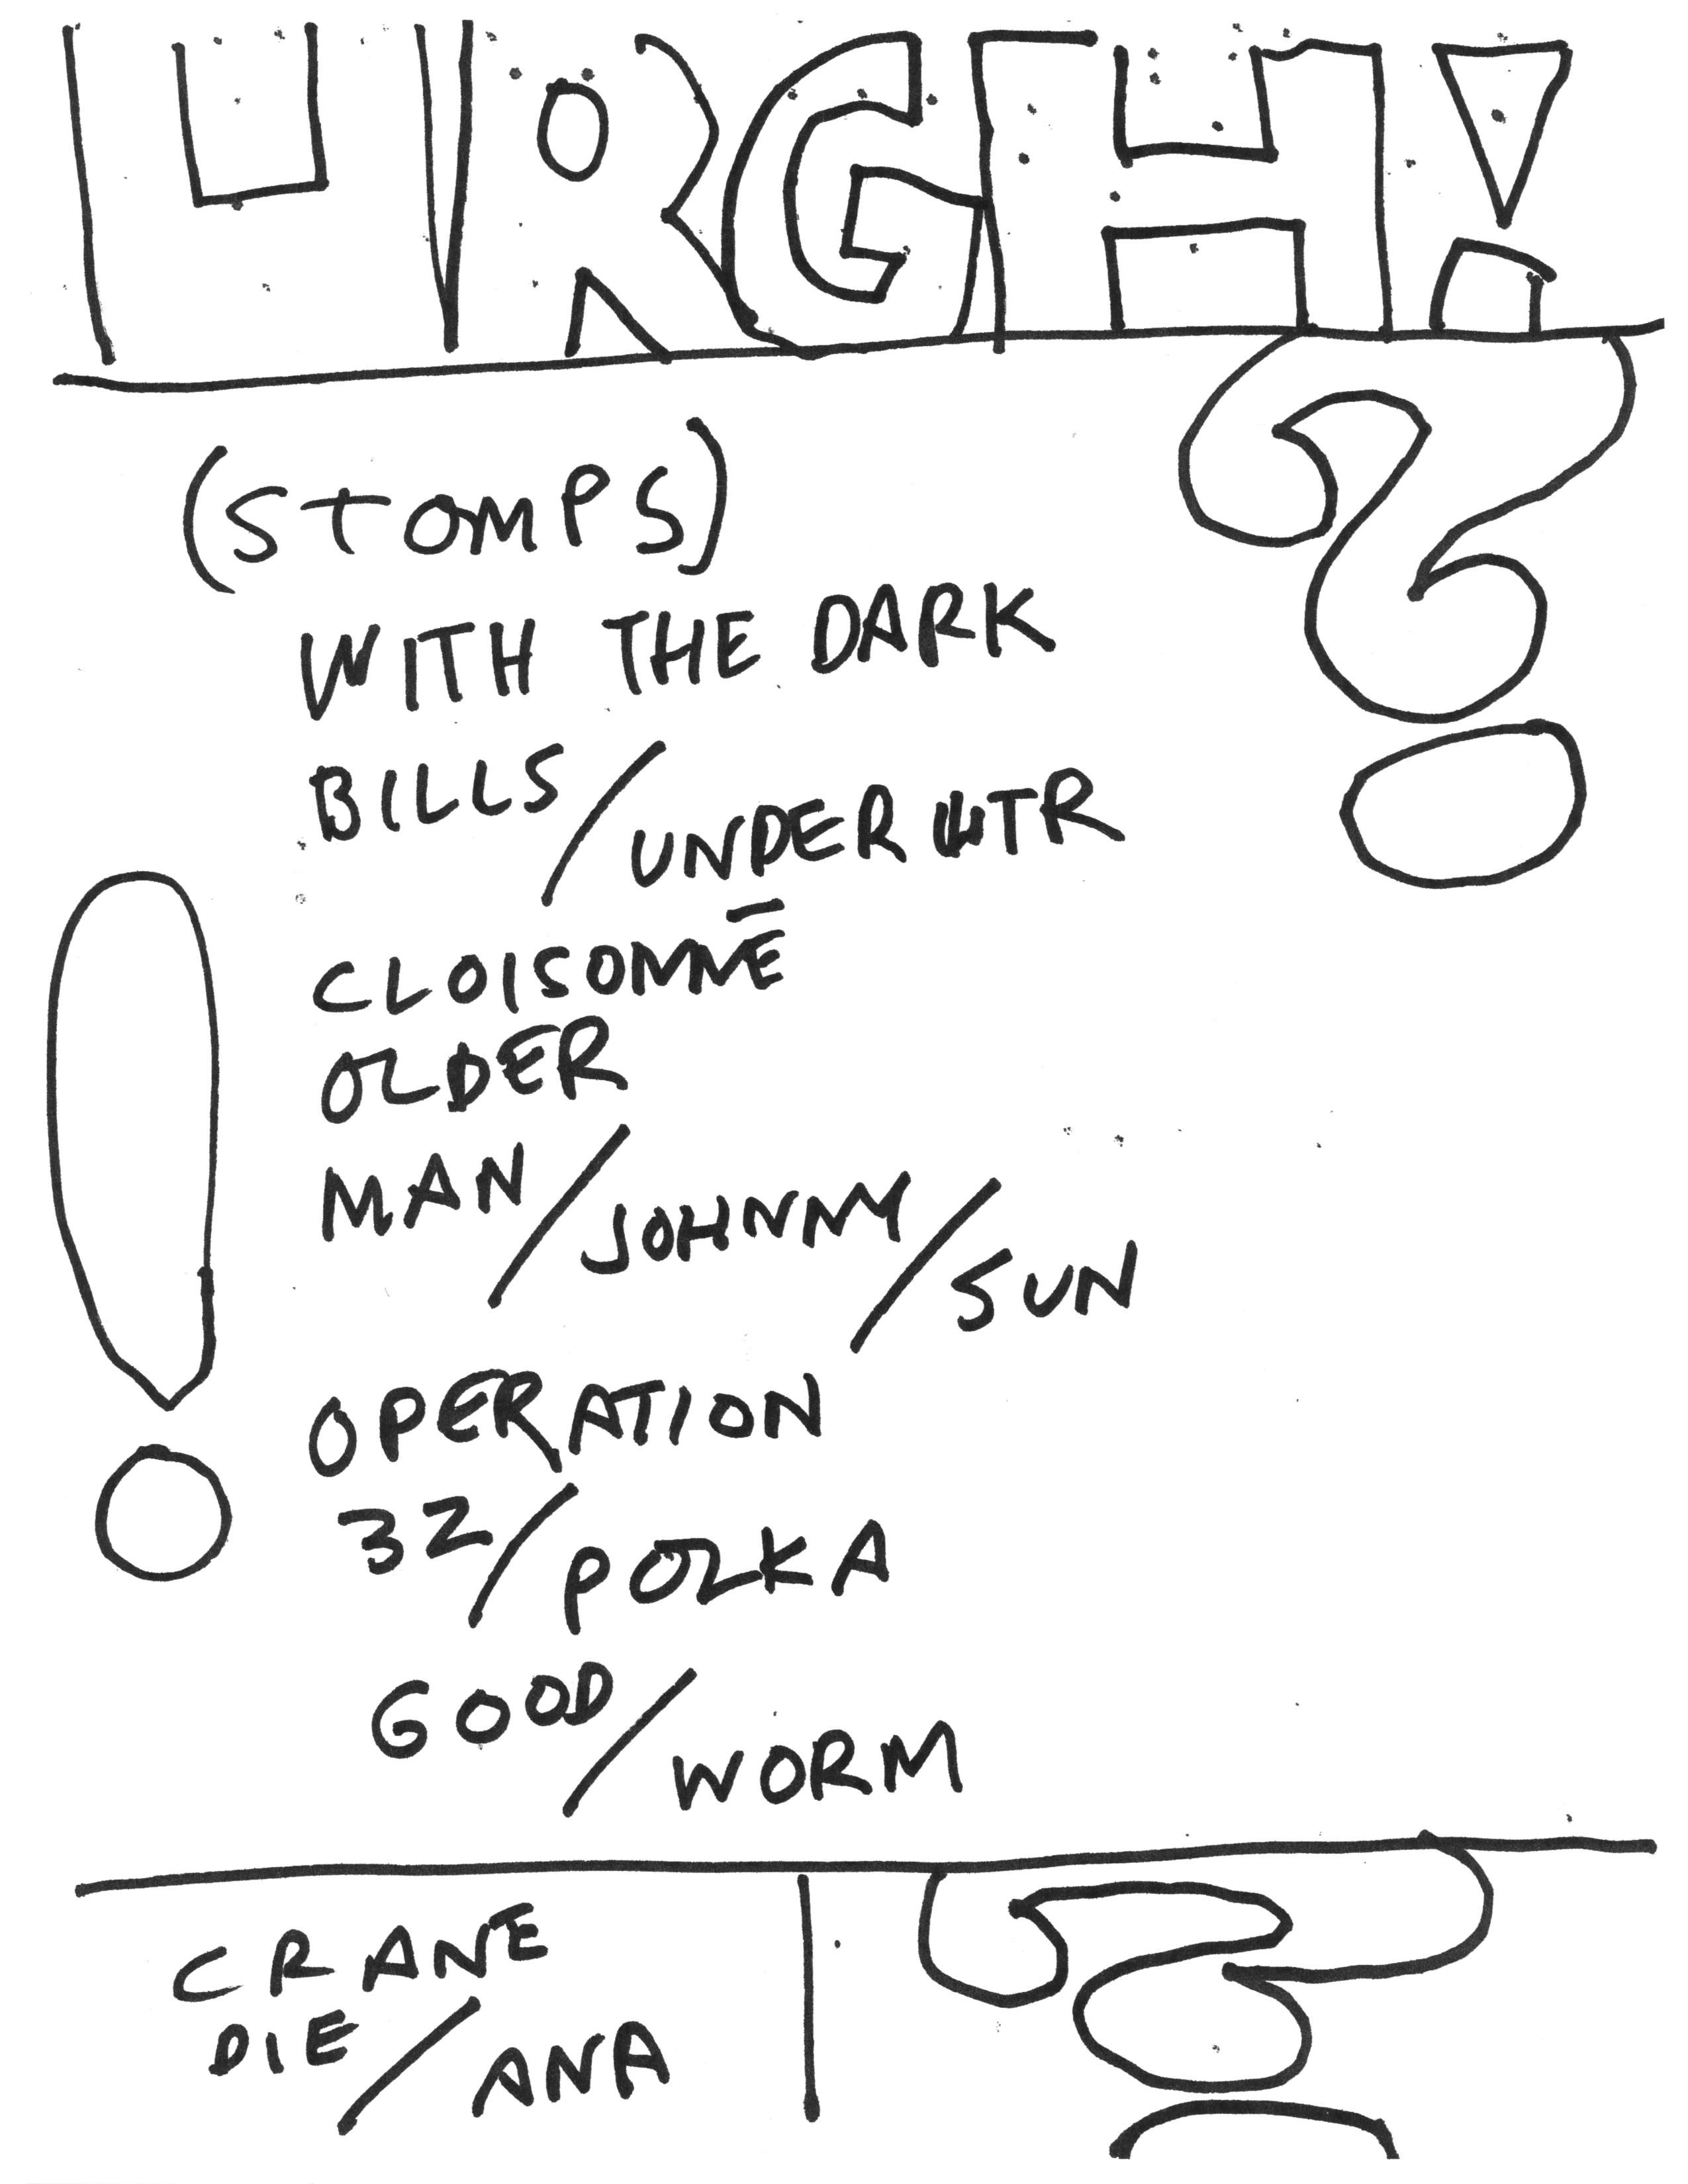 URGH!
(STOMPS)
WITH THE DARK
BILLS/UNDERWTR
CLOISONNĒ
OLDER
MAN/JOHNNY/SUN
OPERATION
32/POLKA
GOOD/WORM
CRANE
DIE/ANA